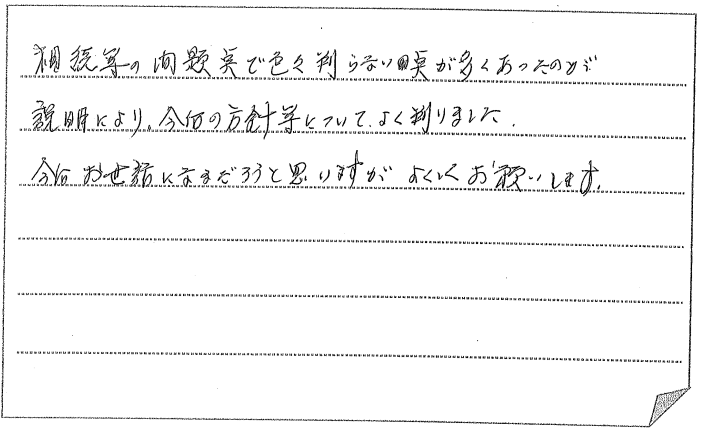 相続等の問題点で色々判らない点が多くあったのですが
説明により、今后の方針等について、よく判りました.
今后お世話になるだろうと思いますがよろしくお願いします.